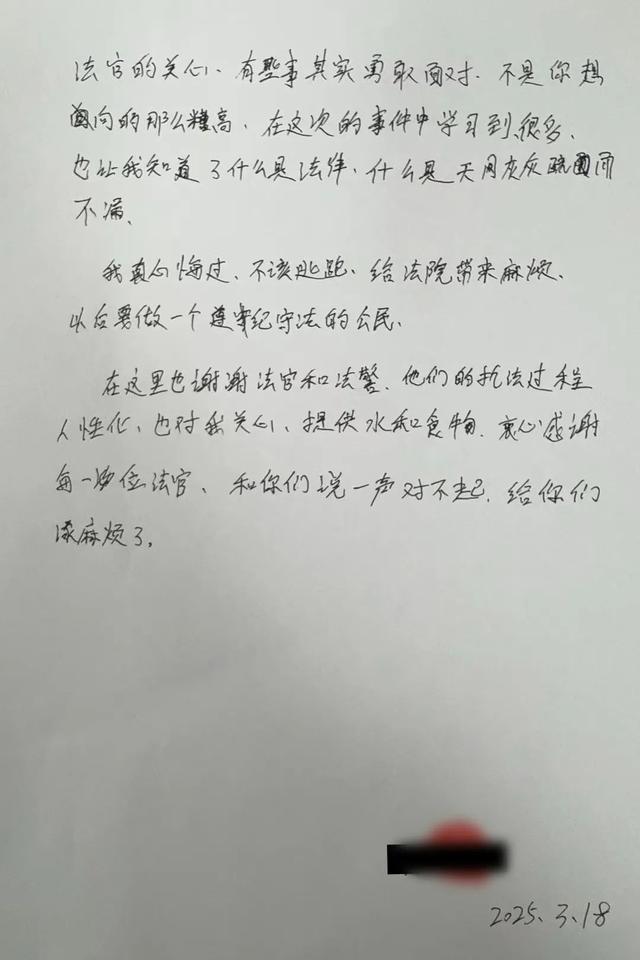 法官的关心、有些事其实勇敢面对. 不是你想
向的那么糟高、在这次的事件中学习到很多、
也让我知道了什么是法律、什么是天网灰灰疏而
不漏、
我真心悔过、不该逃跑、给法院带来麻烦、
以后要做一个遵守纪守法的公民、
在这里也谢谢法官和法警、他们的执法过程
人性化、也对我关心、提供水和食物、衷心感谢
每一位法官、和你们说一声对不起、给你们
添麻烦了,
2025、3、18